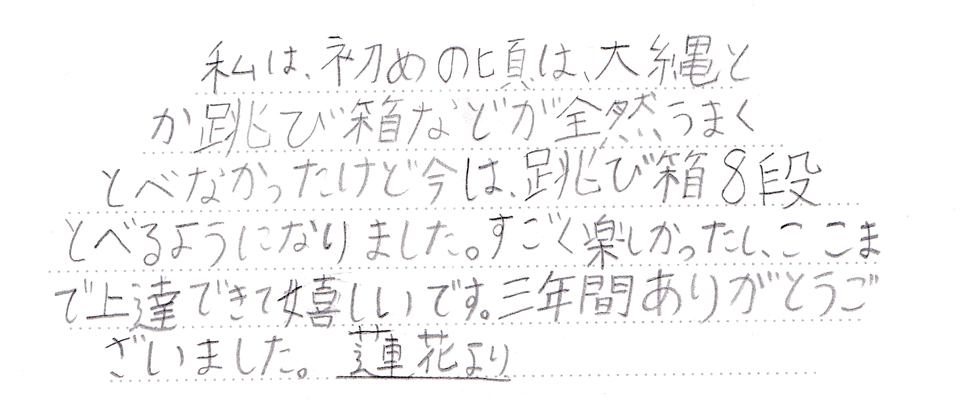 私は、初めの頃は、大縄と
か跳び箱などが全然うまく
とべなかったけど今は、跳び箱8段
とべるようになりました。すごく楽しかったし、ここま
で上達できて嬉しいです。三年間ありがとうご
ざいました。 蓮花より